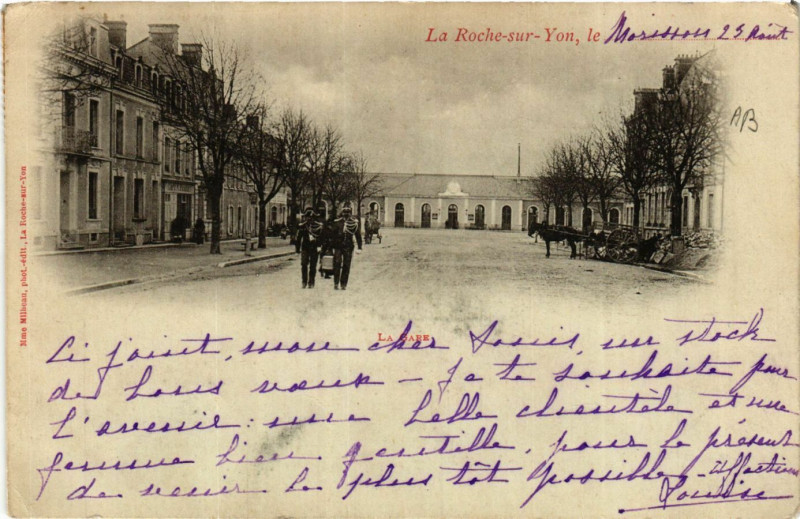 La Roche-sur-Yon, le Morisson 25 Août
AB
Mme Milheau, phot.-édit., La Roche-sur-Yon
LA GARE
Ci-joint, mon cher Louis, un stock
de bons vœux - Je te souhaite pour
l'avenir : une belle clientèle et une
femme bien gentille, pour le présent
de venir le plus tôt possible - Affection
Louise